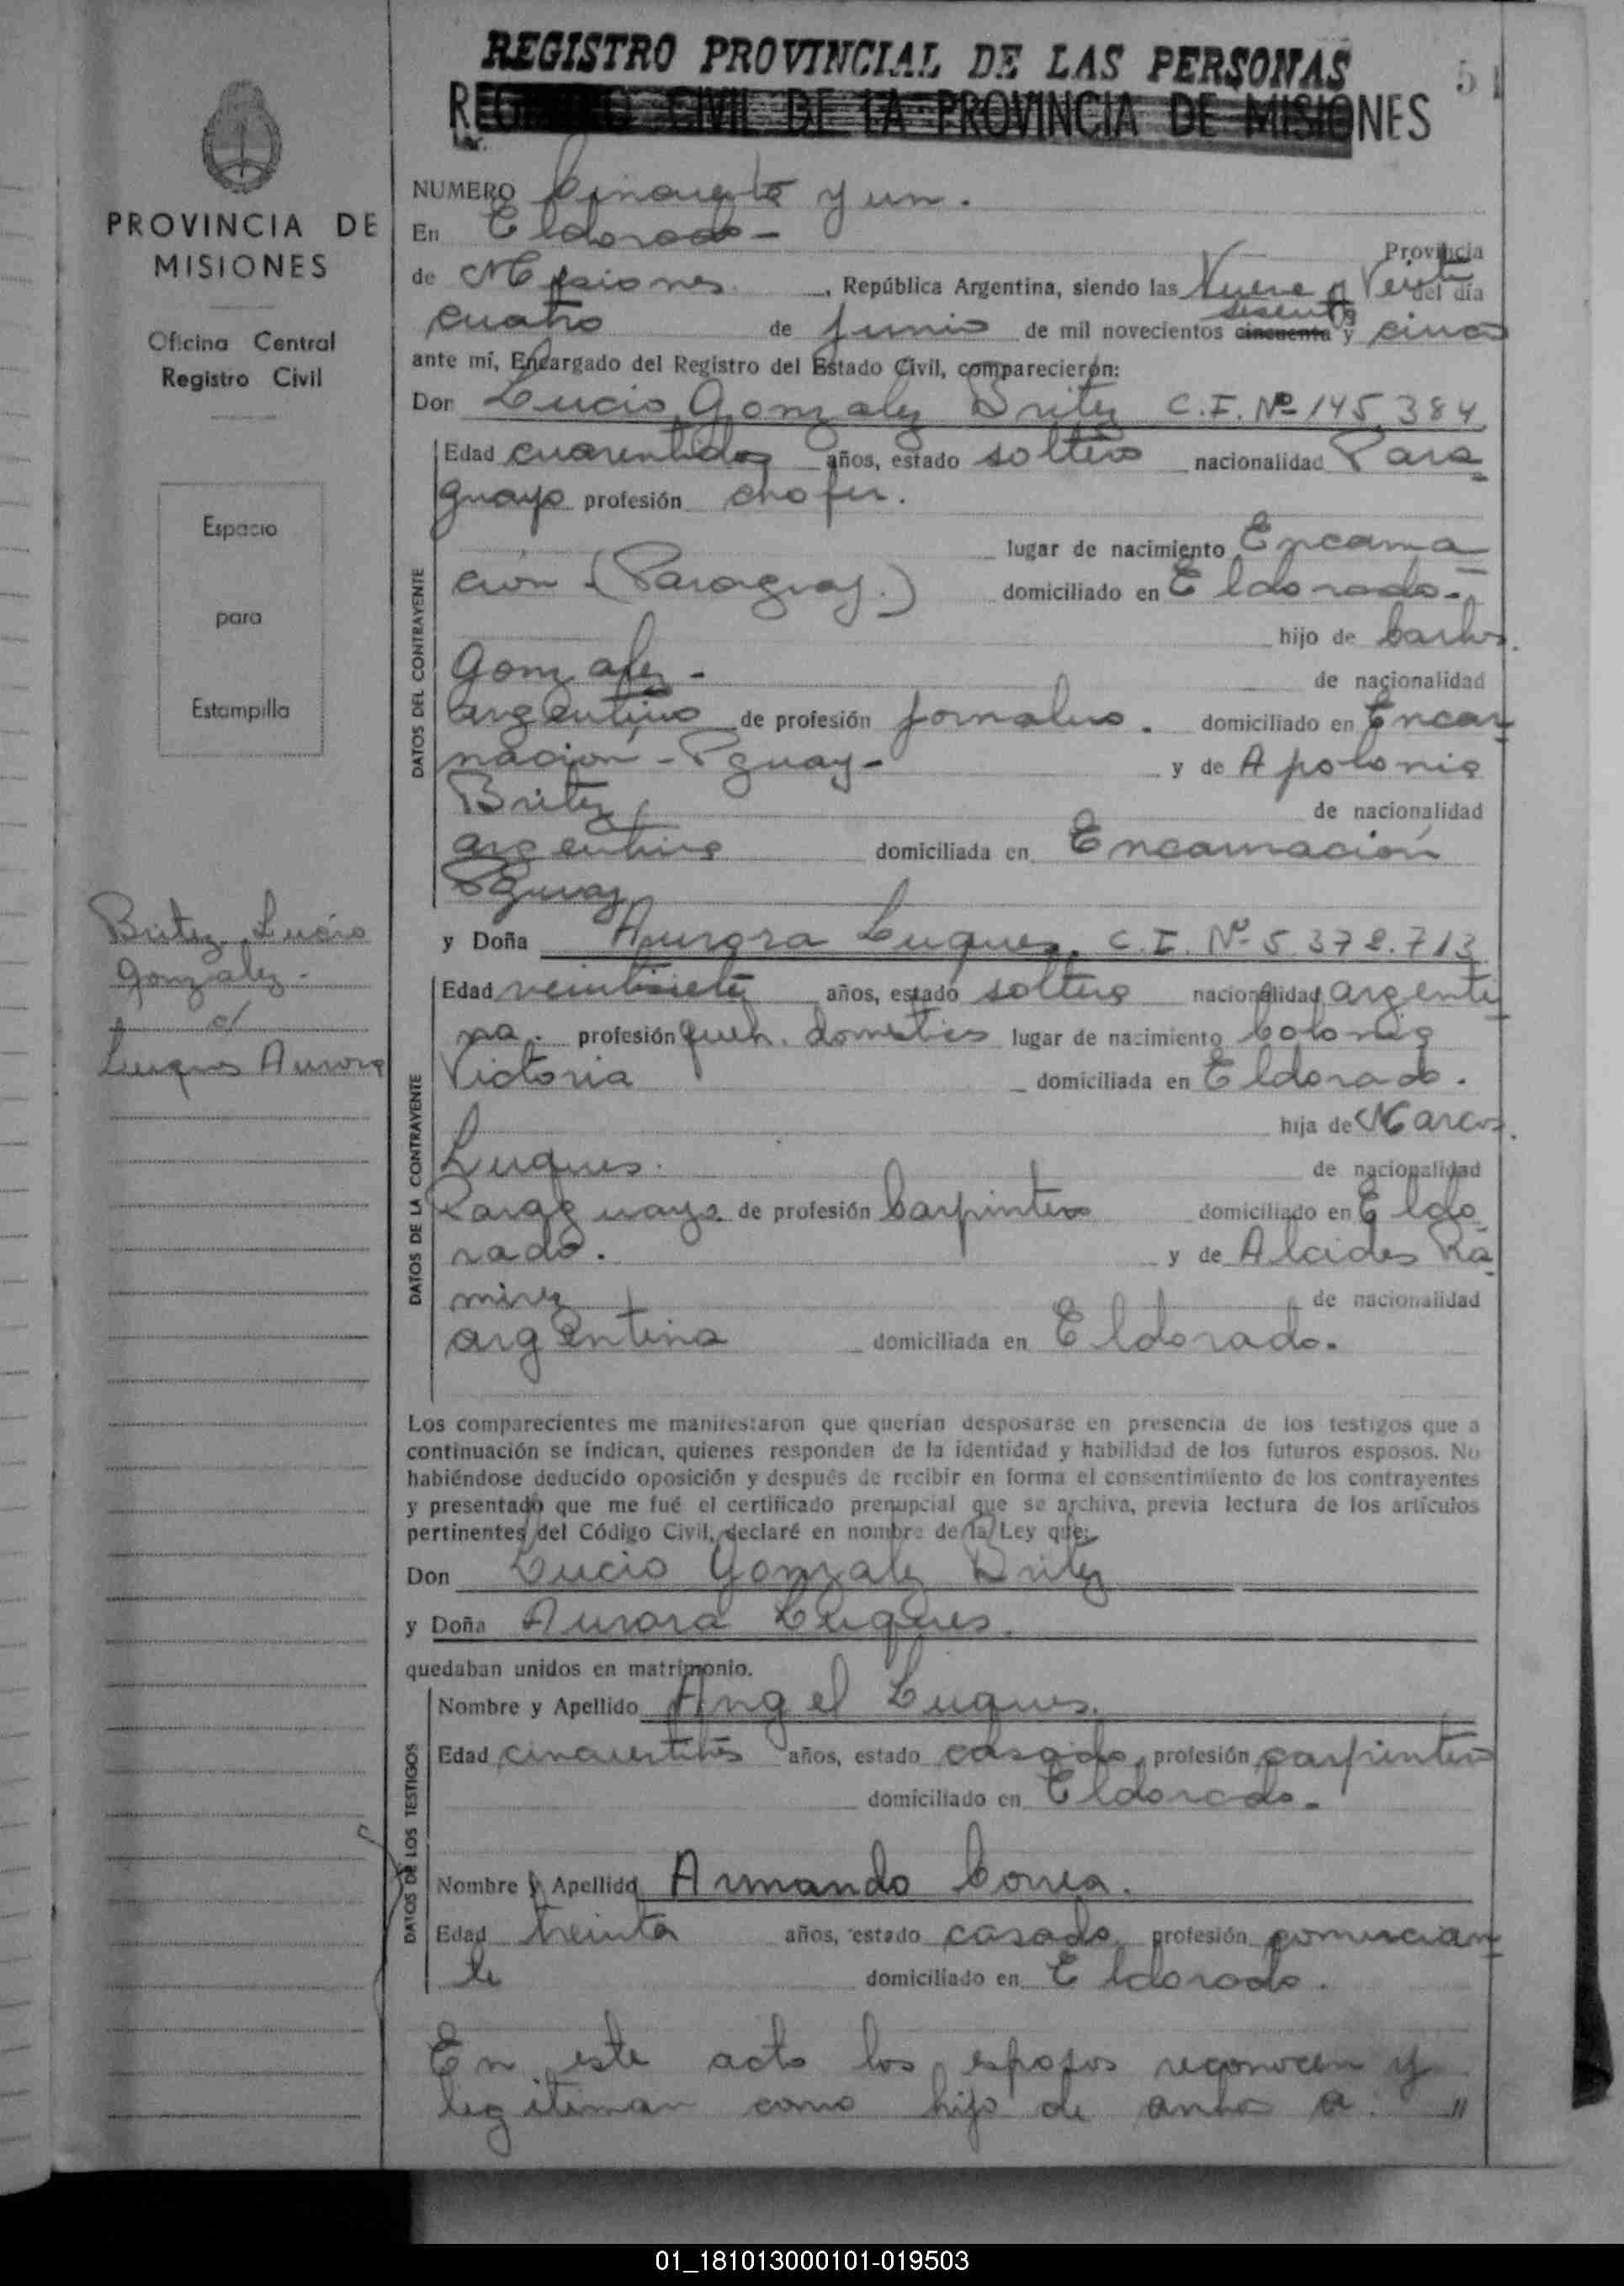 REGISTRO PROVINCIAL DE LAS PERSONAS
51
REGISTRO CIVIL DE LA PROVINCIA DE MISIONES
PROVINCIA DE
MISIONES
Oficina Central
Registro Civil
Espacio
para
Estampilla
Britez Lucio
Gonzalez.
c/
Luques Aurora
NUMERO Cincuenta y un.
En Eldorado - Provincia
de Misiones. , República Argentina, siendo las Nueve y Veinte del día
cuatro de junio de mil novecientos cincuenta sesenta y cinco
ante mí, Encargado del Registro del Estado Civil, comparecieron:
Don Lucio Gonzalez Britez C.I. Nº 145.384
DATOS DEL CONTRAYENTE
Edad cuarentidos años, estado soltero nacionalidad Para
guayo profesión chofer.
lugar de nacimiento Encarna
ción (Paraguay.) domiciliado en Eldorado-
hijo de Carlos
Gonzalez - de nacionalidad
argentino de profesión jornalero. domiciliado en Encar
nación - Pguay- y de Apolonia
Britez de nacionalidad
argentina domiciliada en Encarnación
Pguay
y Doña Aurora Luques, C.I. Nº 5.372.713
DATOS DE LA CONTRAYENTE
Edad veintisiete años, estado soltera nacionalidad argenti
na. profesión queh. domestics lugar de nacimiento Colonia
Victoria domiciliada en Eldorado.
hija de Marcos
Luques. de nacionalidad
Paraguayo de profesión Carpintero domiciliado en Eldo
rado. y de Alcides Ra
mirez de nacionalidad
argentina domiciliada en Eldorado.
Los comparecientes me manifestaron que querían desposarse en presencia de los testigos que a
continuación se indican, quienes responden de la identidad y habilidad de los futuros esposos. No
habiéndose deducido oposición y después de recibir en forma el consentimiento de los contrayentes
y presentado que me fué el certificado prenupcial que se archiva, previa lectura de los artículos
pertinentes del Código Civil, declaré en nombre de la Ley que:
Don Lucio Gonzalez Britez
y Doña Aurora Luques.
quedaban unidos en matrimonio.
DATOS DE LOS TESTIGOS
Nombre y Apellido Angel Luques.
Edad cincuentitres años, estado casado, profesión carpintero
domiciliado en Eldorado.
Nombre y Apellido Armando Correa.
Edad treinta años, estado casado profesión comercian
te domiciliado en Eldorado.
En este acto los esposos reconocen y
legitiman como hijo de ambos a: "
01_181013000101-019503